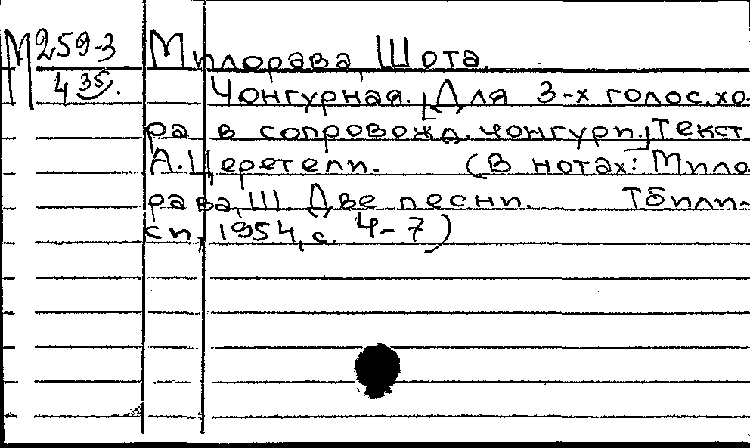 М 259-3 Милорава Шота.
4 35. Чонгурная. [Для 3-х голос. хо
ра в сопровожд. чонгури.] Текст
А. Церетели. (В нотах: Мило
рава, Ш. Две песни. Тбили-
си, 1954, с. 4-7)